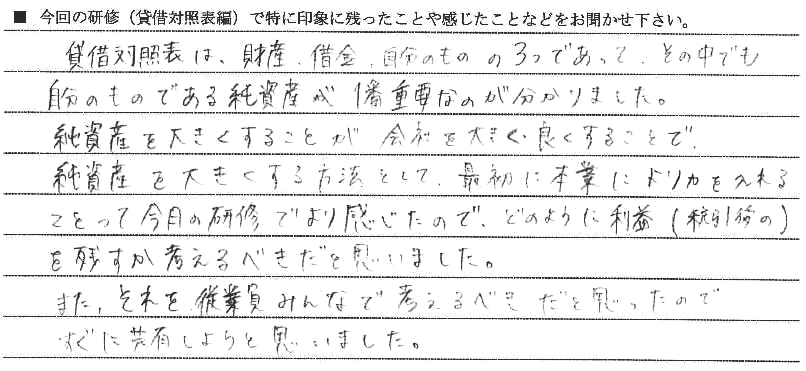 ■ 今回の研修（貸借対照表編）で特に印象に残ったことや感じたことなどをお聞かせ下さい。
貸借対照表は、財産、借金、自分のものの3つであって、その中でも
自分のものである純資産が1番重要なのが分かりました。
純資産を大きくすることが会社を大きく・良くすることで、
純資産を大きくする方法として、最初に本業により力を入れる
ことって今月の研修でより感じたので、どのように利益(税引後の)
を残すか考えるべきだと思いました。
また、それを従業員みんなで考えるべきだと思ったので
すぐに共有しようと思いました。